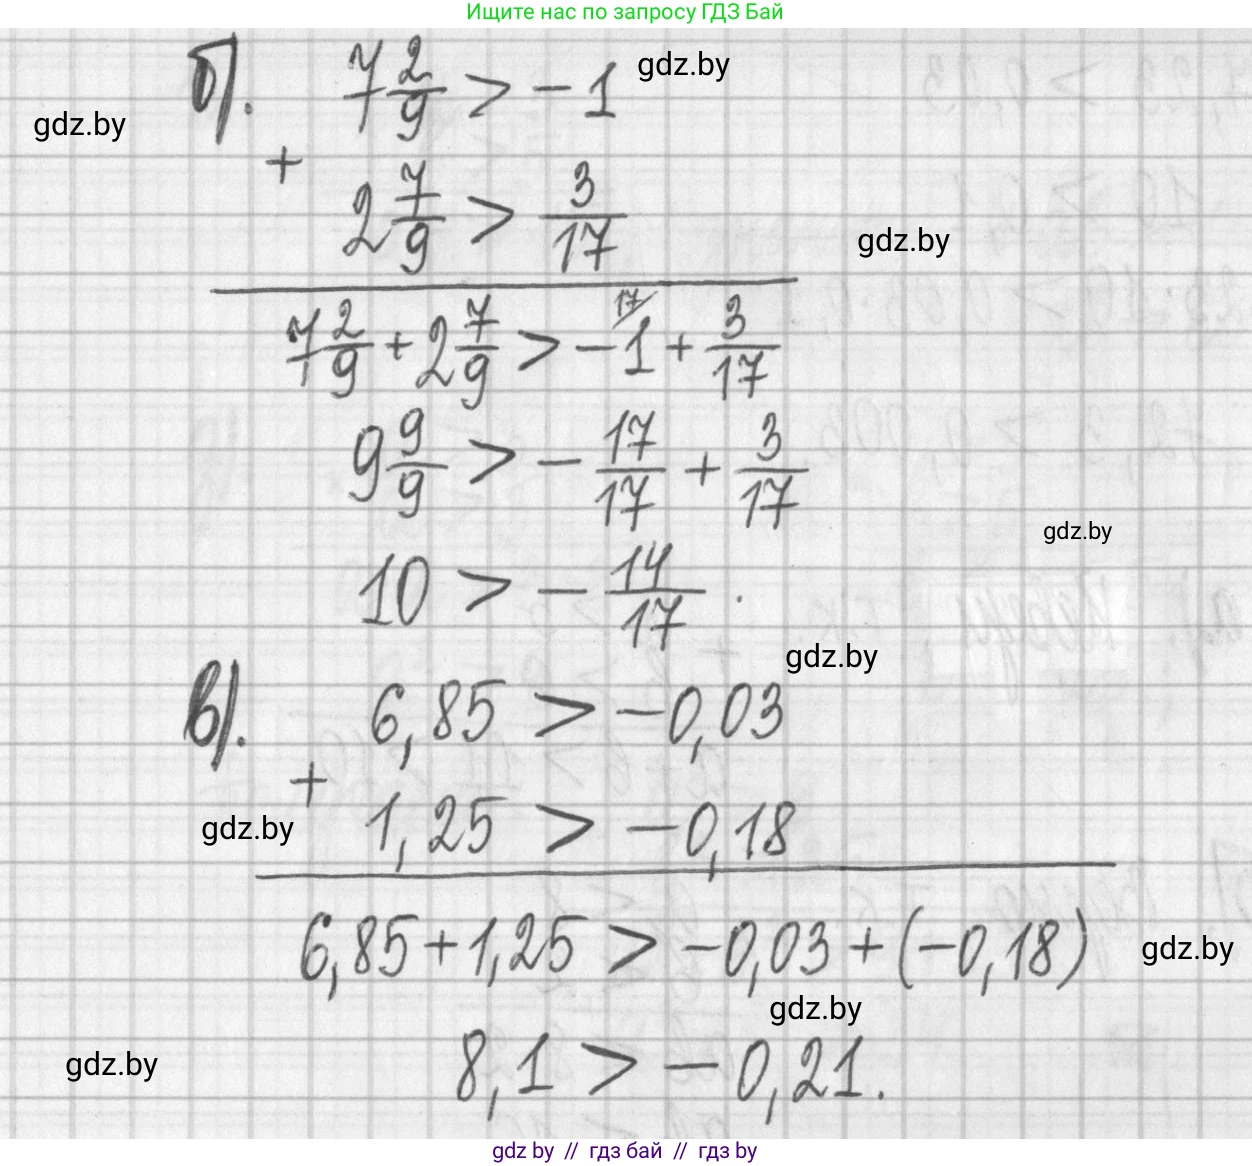 Ищите нас по запросу ГДЗ Бай
б). 7 2/9 > -1
gdz.by
gdz.by
+
2 7/9 > 3/17
gdz.by
7 2/9 + 2 7/9 > -1 17/ + 3/17
9 9/9 > - 17/17 + 3/17
gdz.by
10 > - 14/17 .
gdz.by
в). 6,85 > -0,03
+
1,25 > -0,18
gdz.by
6,85 + 1,25 > -0,03 + (-0,18)
gdz.by
gdz.by
8,1 > -0,21.
gdz.by
gdz by // гдз бай // гдз by